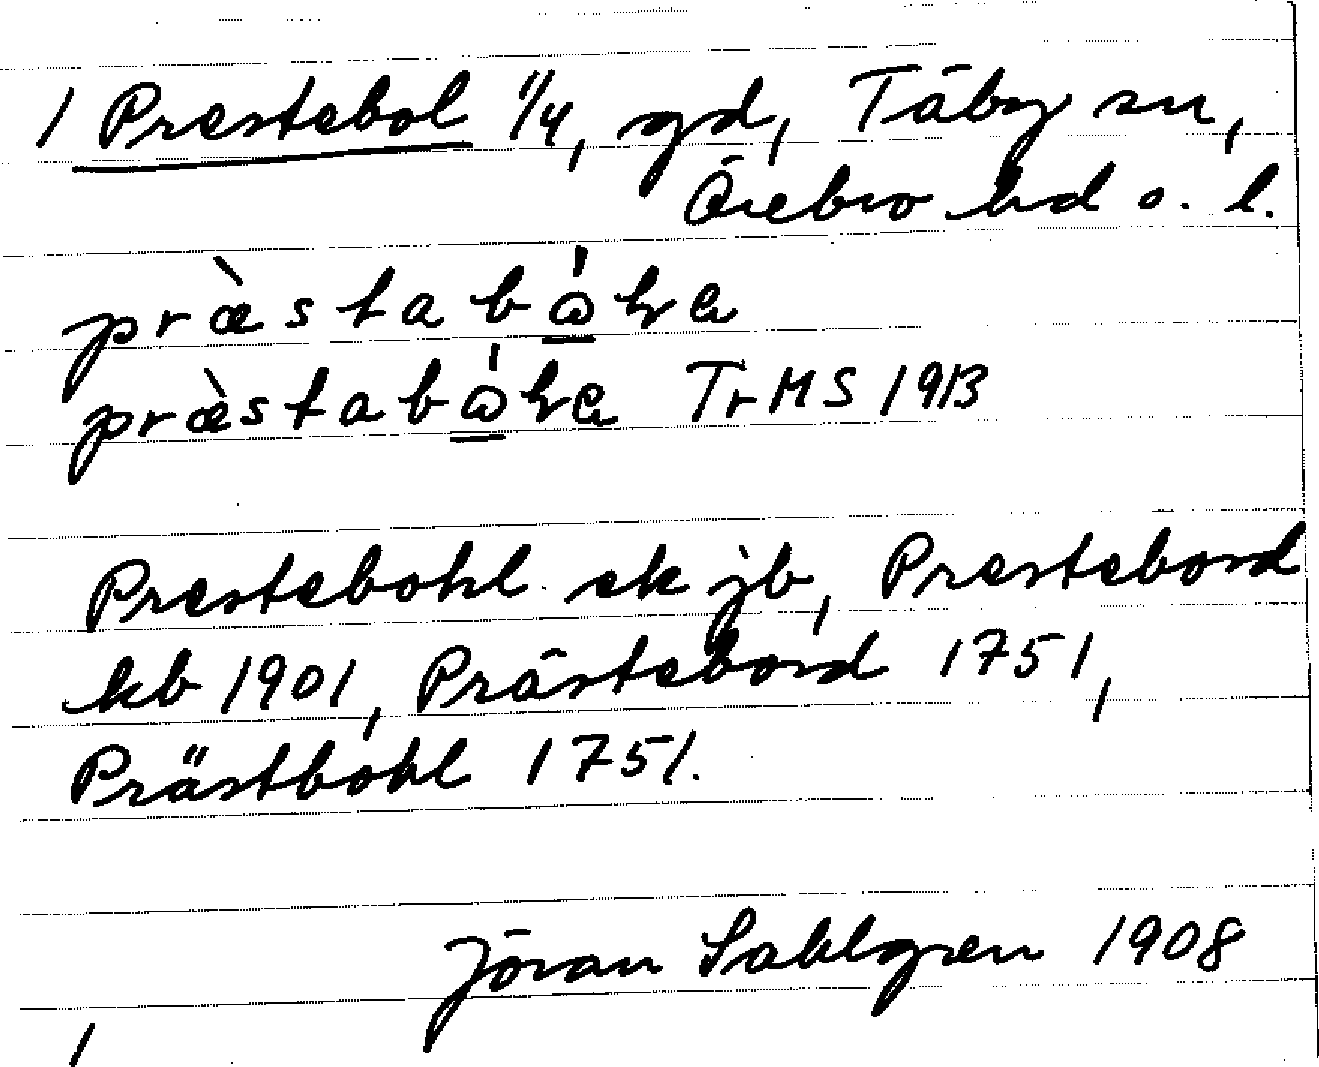 1 Prestebol 1/4, gd, Täby sn,
Örebro hd o. l.
præ̀stabɷ́ɬɐ
præ̀stabɷ́ɬɐ TrMS 1913
Prestebohl ek jb, Prestebord
kb 1901, Prästebord 1751,
Prästbohl 1751.
Jöran Sahlgren 1908
1